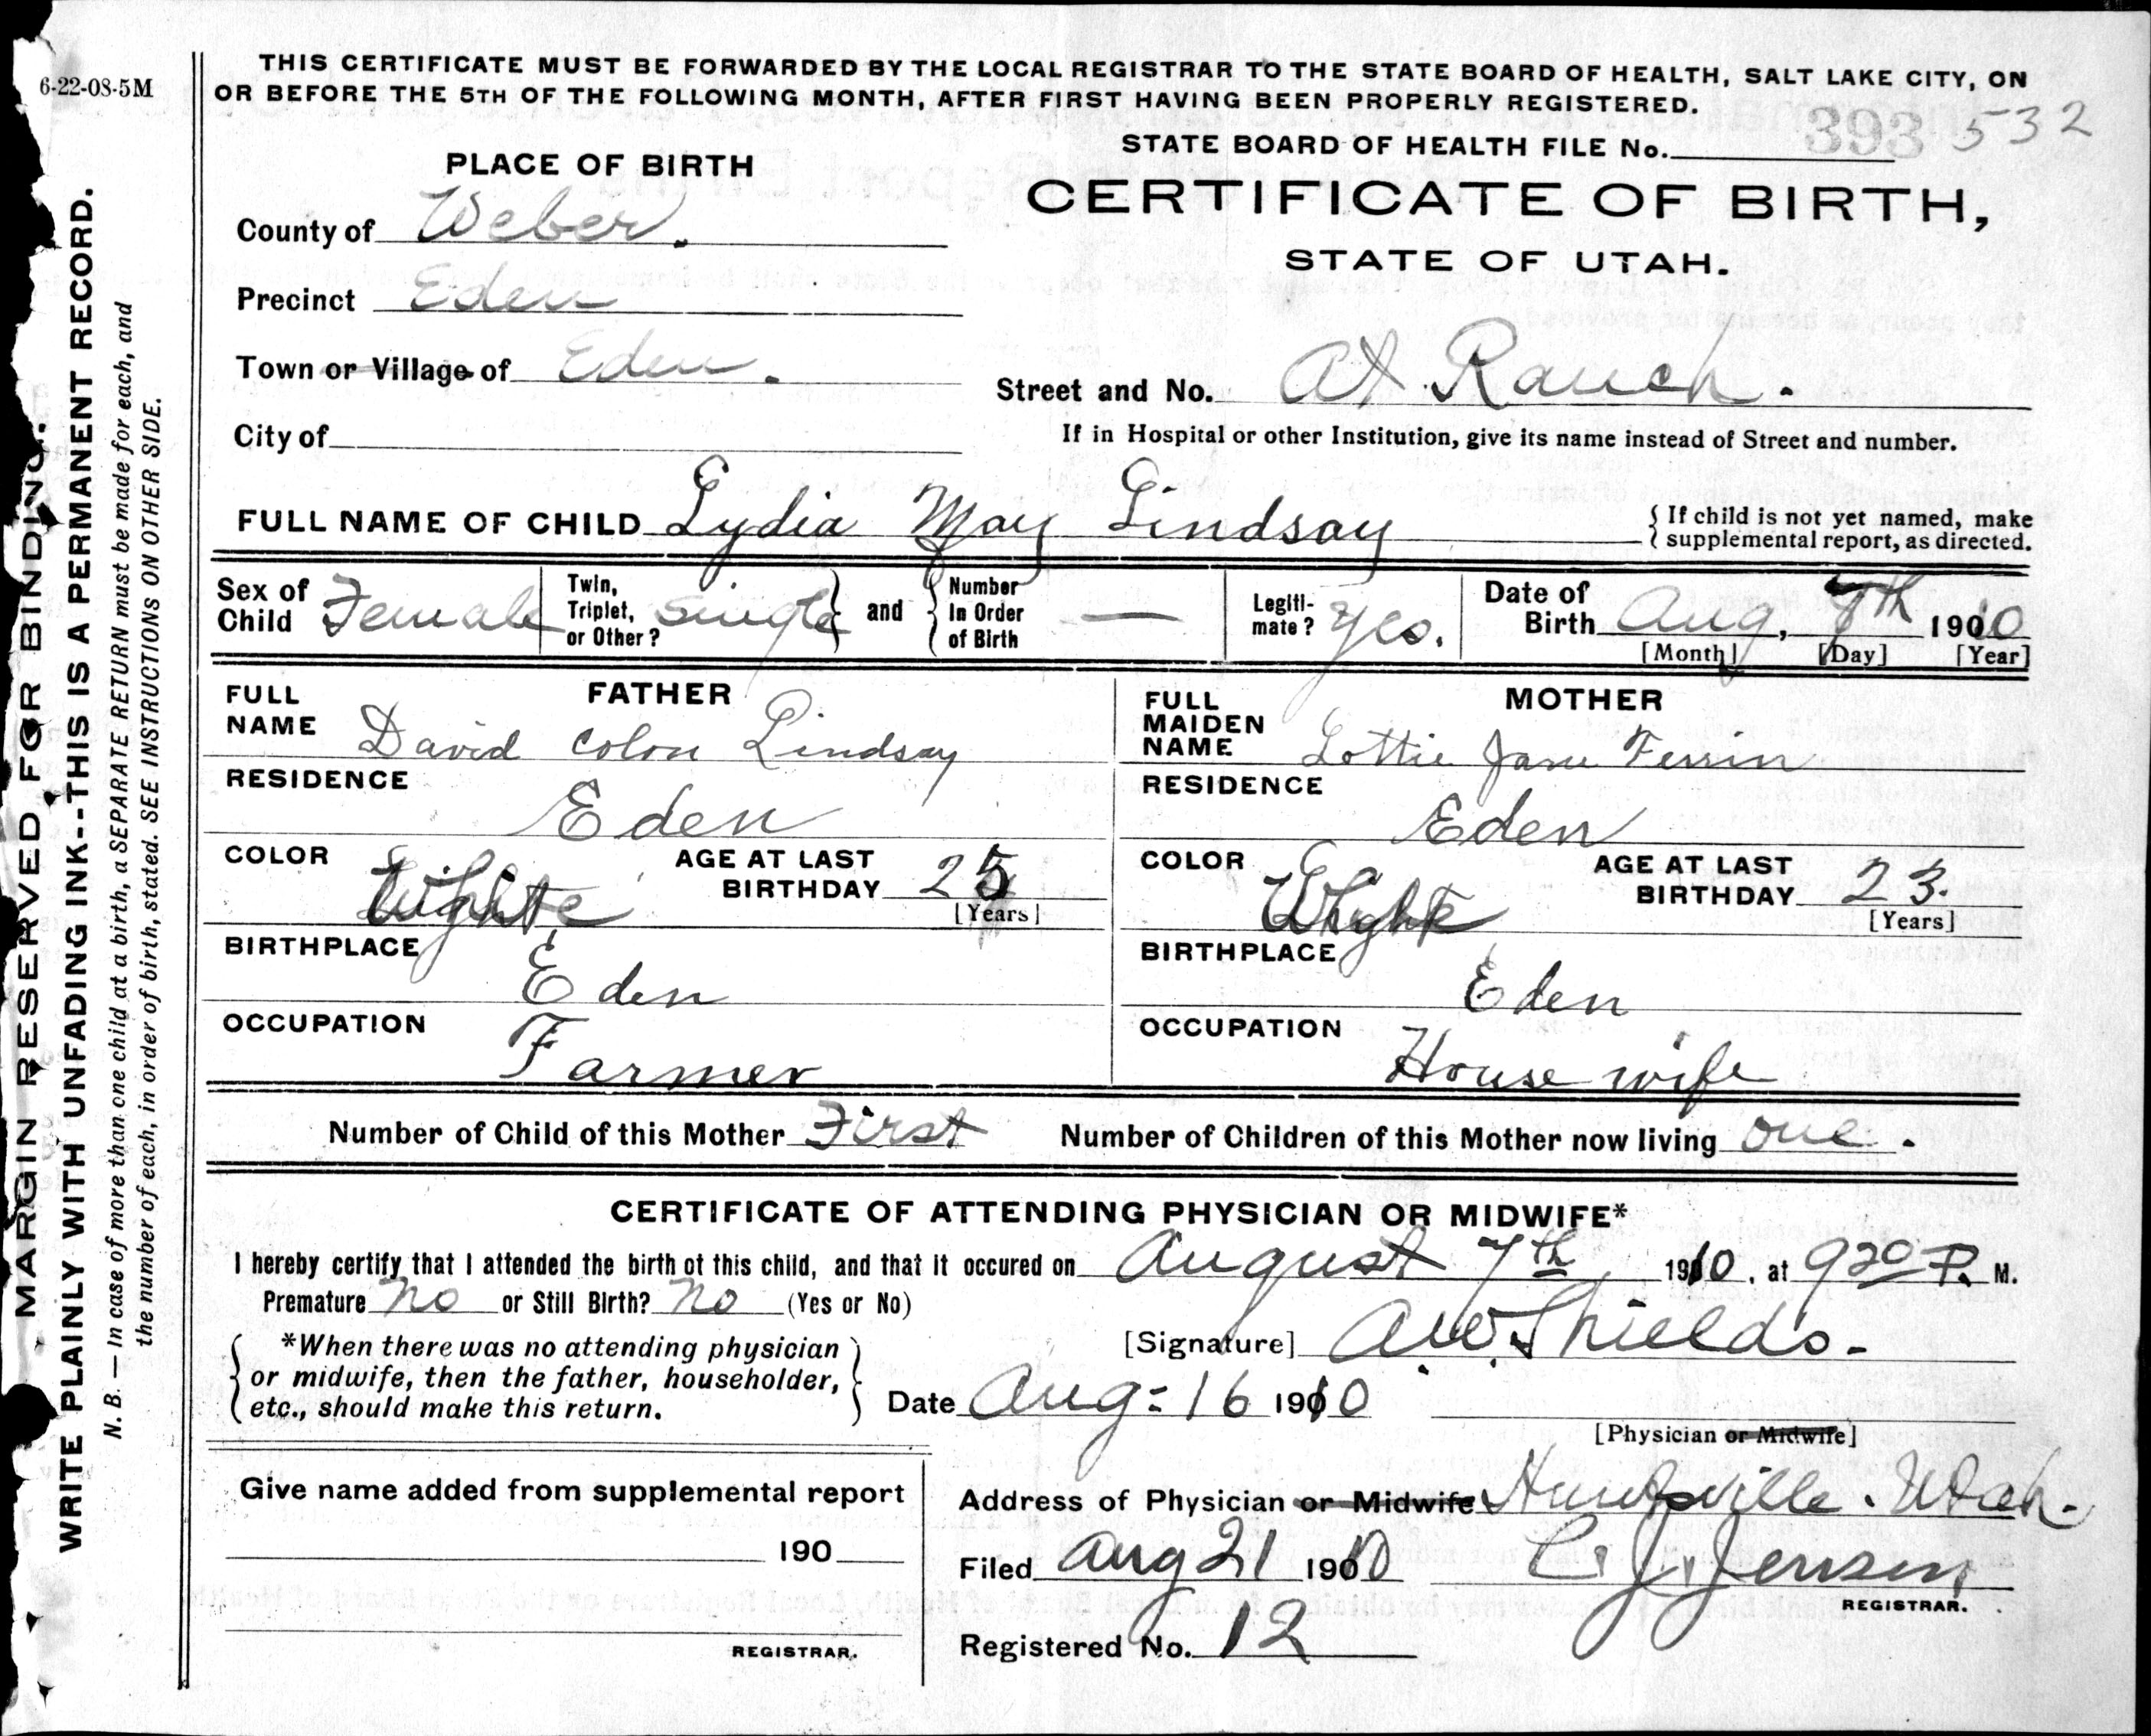 6-22-08-5M
THIS CERTIFICATE MUST BE FORWARDED BY THE LOCAL REGISTRAR TO THE STATE BOARD OF HEALTH, SALT LAKE CITY, ON
OR BEFORE THE 5TH OF THE FOLLOWING MONTH, AFTER FIRST HAVING BEEN PROPERLY REGISTERED.
STATE BOARD OF HEALTH FILE No. 393 532
PLACE OF BIRTH
CERTIFICATE OF BIRTH,
STATE OF UTAH.
County of Weber.
Precinct Eden
Town or Village of Eden.
Street and No. At Ranch.
City of
If in Hospital or other Institution, give its name instead of Street and number.
FULL NAME OF CHILD Lydia May Lindsay
{ If child is not yet named, make
supplemental report, as directed.
Sex of Child Female
Twin, Triplet, or Other? Single } and { Number In Order of Birth —
Legiti-mate? Yes.
Date of Birth Aug, 7th 1910
[Month] [Day] [Year]
FATHER
FULL NAME David Colon Lindsay
MOTHER
FULL MAIDEN NAME Lottie Jane Ferrin
RESIDENCE Eden
RESIDENCE Eden
COLOR White AGE AT LAST BIRTHDAY 25
[Years]
COLOR White AGE AT LAST BIRTHDAY 23.
[Years]
BIRTHPLACE Eden
BIRTHPLACE Eden
OCCUPATION Farmer
OCCUPATION House wife
Number of Child of this Mother First Number of Children of this Mother now living one.
CERTIFICATE OF ATTENDING PHYSICIAN OR MIDWIFE*
I hereby certify that I attended the birth of this child, and that it occured on August 7th 1910, at 9 20 P. M.
Premature No or Still Birth? No (Yes or No)
[Signature] A.W. Shields.
{ *When there was no attending physician
or midwife, then the father, householder,
etc., should make this return. }
Date Aug- 16 1910
[Physician or Midwife]
Give name added from supplemental report
190
REGISTRAR.
Address of Physician or Midwife Huntsville. Utah.
Filed Aug 21 1910 C. J. Jensen
REGISTRAR.
Registered No. 12
MARGIN RESERVED FOR BINDING.
WRITE PLAINLY WITH UNFADING INK--THIS IS A PERMANENT RECORD.
N. B. — In case of more than one child at a birth, a SEPARATE RETURN must be made for each, and
the number of each, in order of birth, stated. SEE INSTRUCTIONS ON OTHER SIDE.